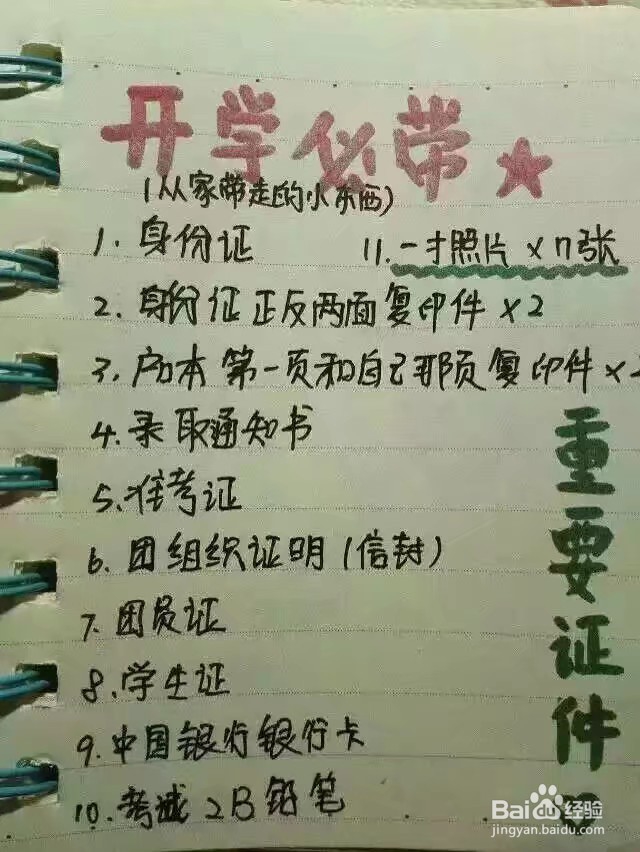 开学必带
(从家带走的小东西)
1. 身份证
11. 一寸照片×n张
2. 身份证正反两面复印件×2
3. 户口本第一页和自己那页复印件×2
4. 录取通知书
5. 准考证
6. 团组织证明(信封)
7. 团员证
8. 学生证
9. 中国银行银行卡
10. 考试2B铅笔
重要证件
Baidu经验
jingyan.baidu.com